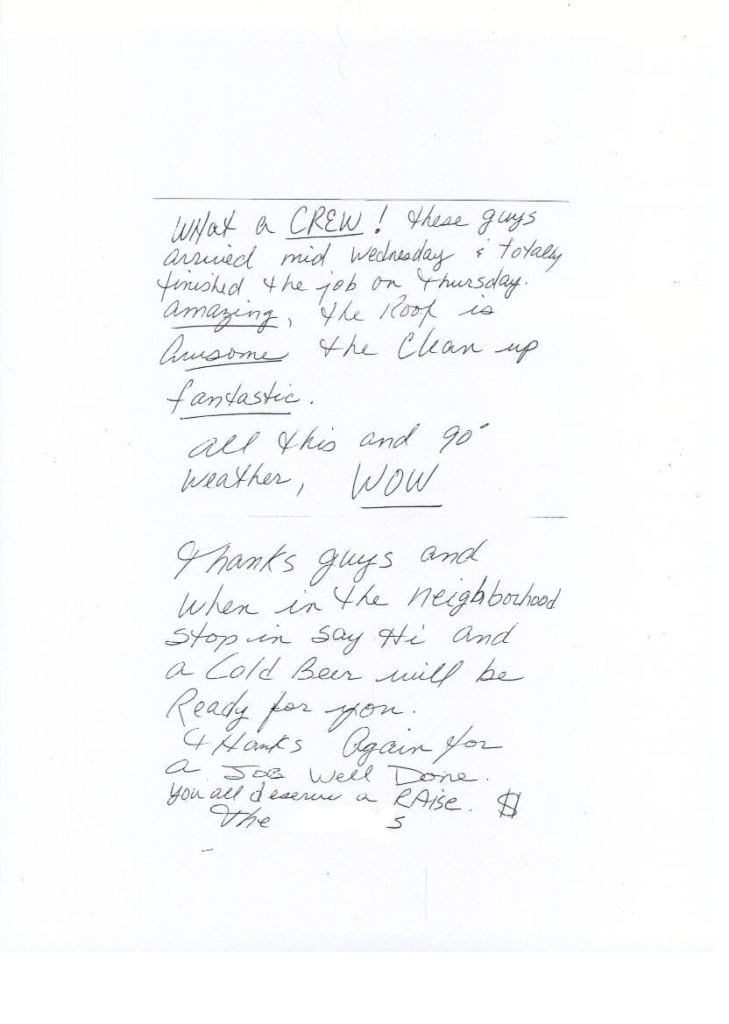 What a CREW! these guys
arrived mid Wednesday & totally
finished the job on thursday.
amazing, the Roof is
Awsome the Clean up
fantastic.
all this and 90°
weather, WOW
Thanks guys and
when in the neighborhood
stop in say Hi and
a Cold Beer will be
Ready for you.
thanks Again for
a JOB Well Done.
you all deserve a RAise. $
the s